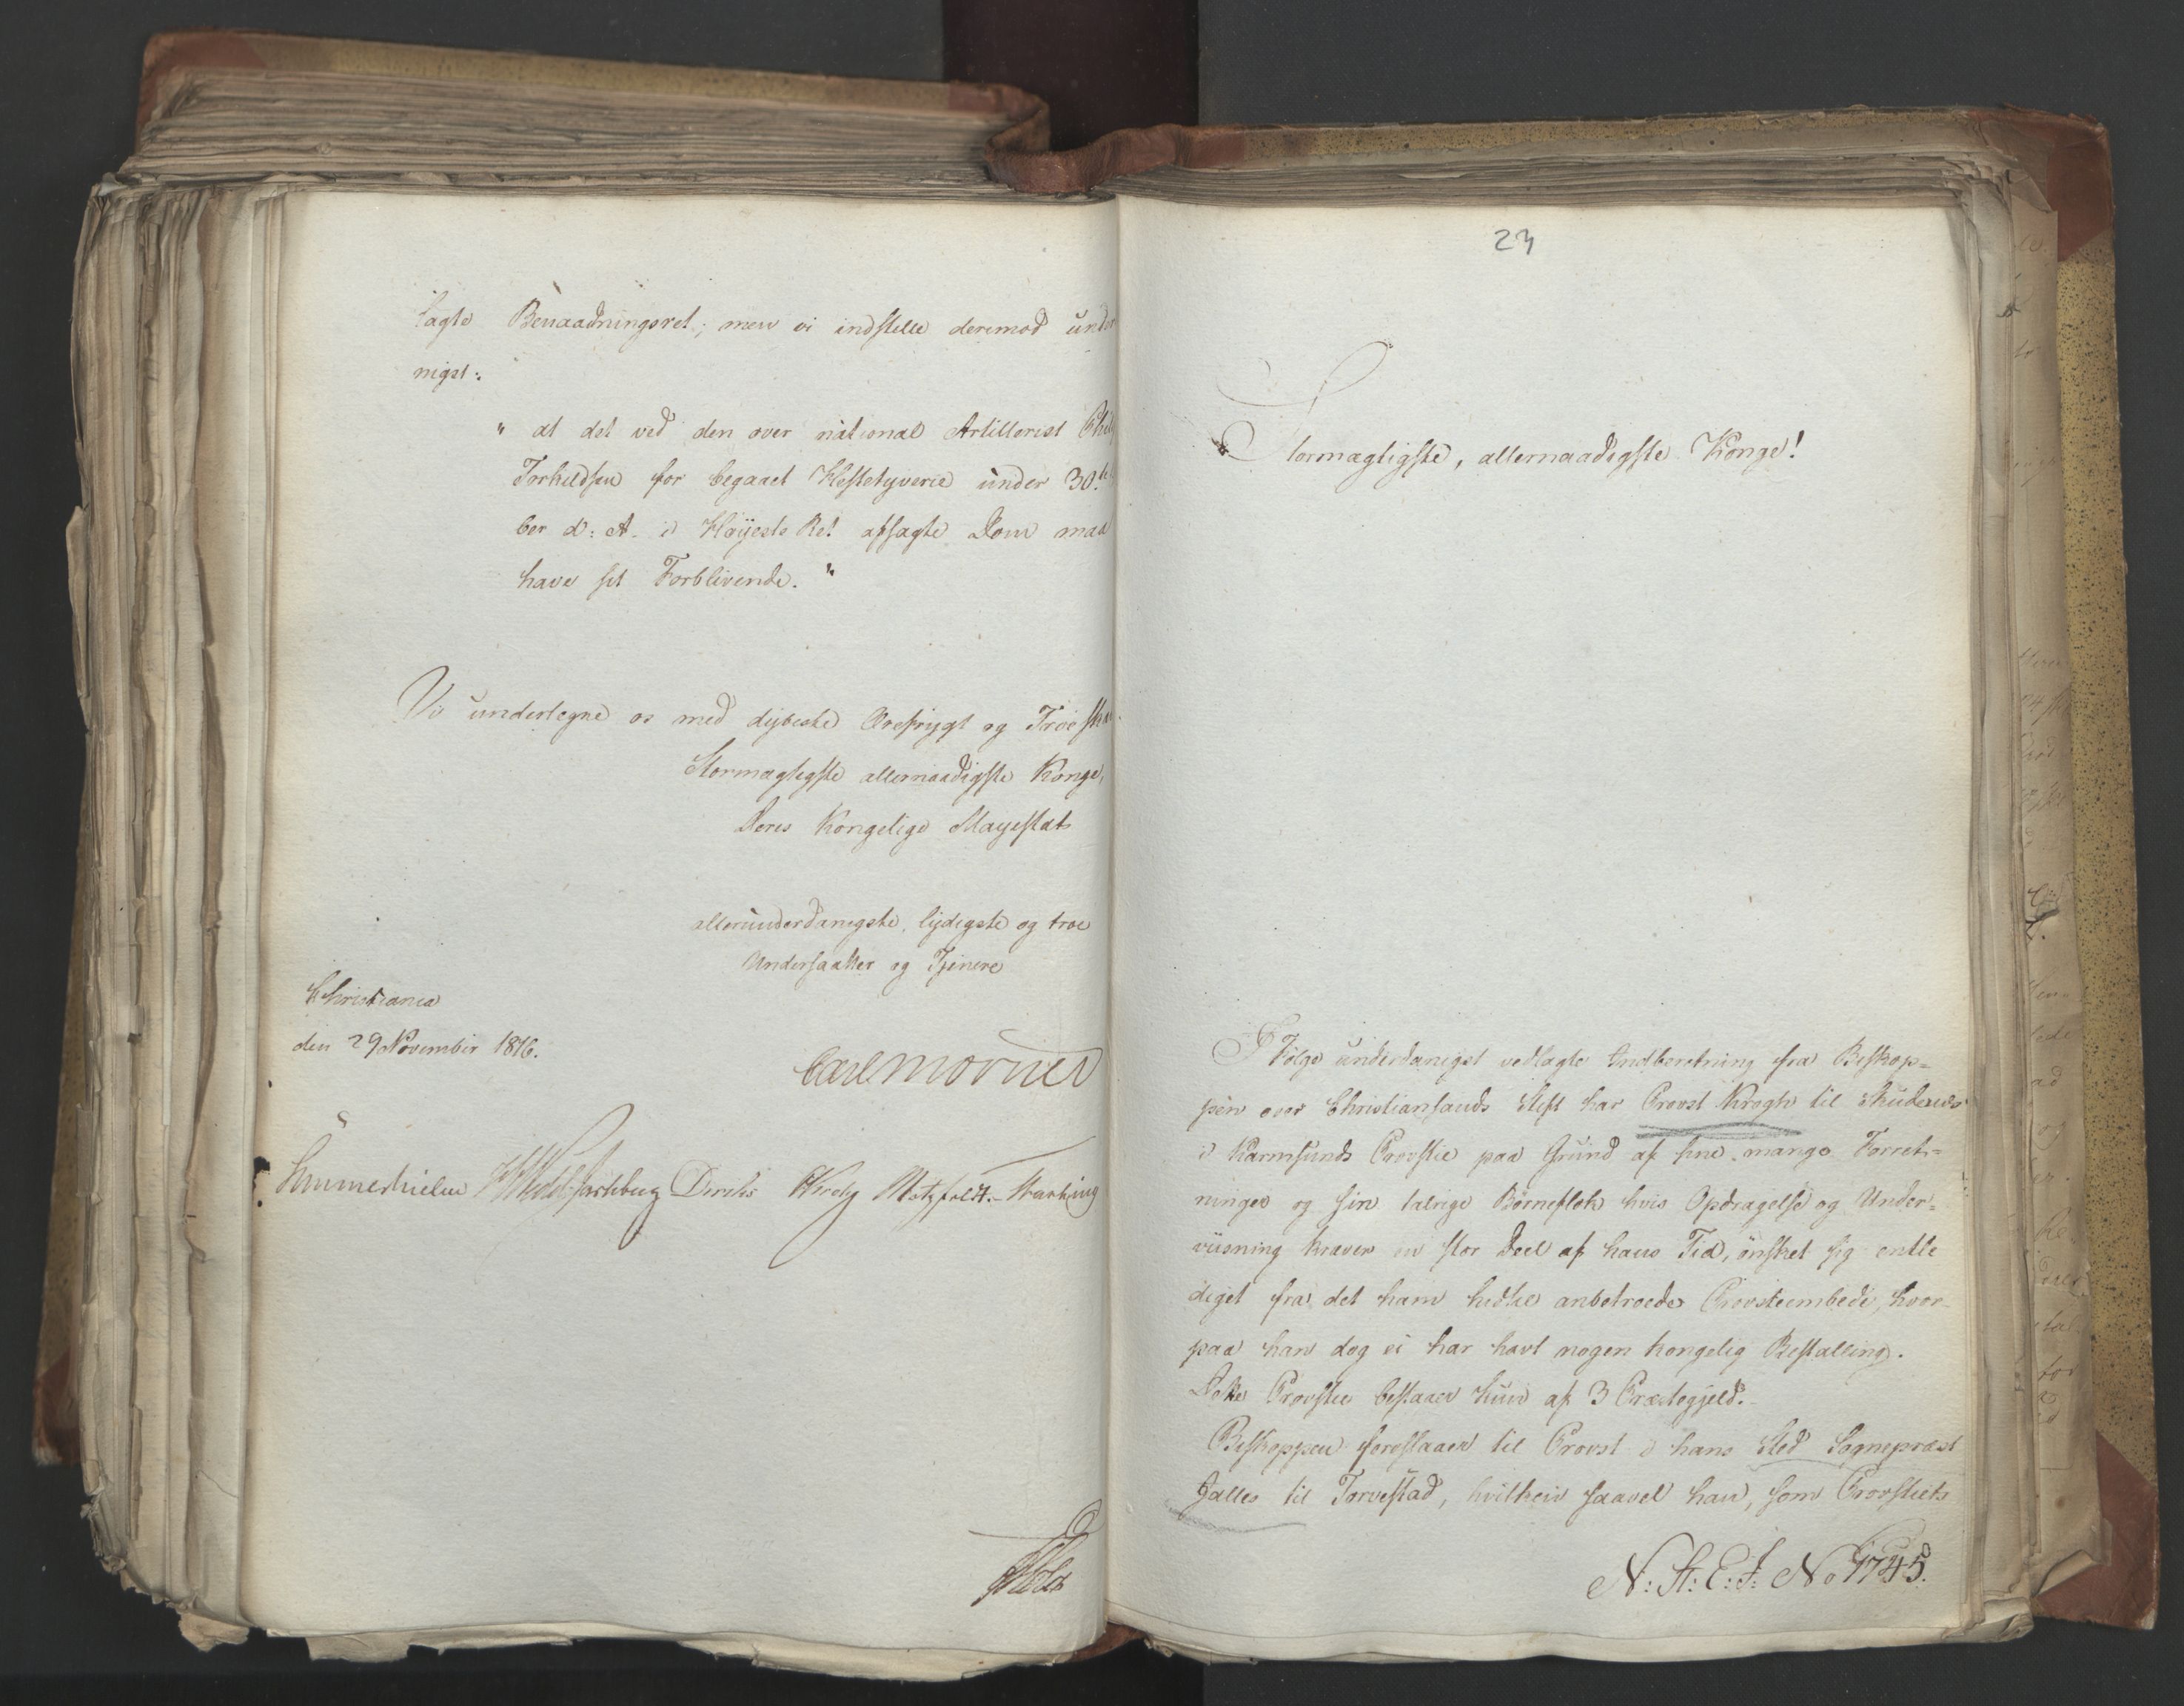 lagte Benaadningsret; men vi indstille derimod under
nigst:
" at det ved den over national Artillerist
Torkildsen for begaaet Hestetyverie under 30te
ber d: A. i Høyeste Ret afsagte Dom maa
have sit Forblivende. "
Vi undertegne os med dybeste Ærefrygt og Troeskab
Stormægtigste allernaadigste Konge,
Deres Kongelige Mayestæts
allerunderdanigste, lydigste og troe
Undersaatter og Tjenere
Christiania
den 29 November 1816.
Carl Mörner
Sommerhielm Diriks Krog Motzfeldt
Holst
23
Stormægtigste, allernaadigste Konge!
I Følge underdanigst vedlagte Indberetning fra Biskop=
pen over Christiansands Stift har Provst Krogh til Skudenes
i Karmsunds Provstie paa Grund af sine mange Forret=
ninger og sin talrige Børneflok hvis Opdragelse og Under=
viisning kræver en stor Deel af hans Tid, ønsket sig entle
diget fra det ham hidtil anbetroede Provsteembede, hvor-
paa han dog ei har havt nogen kongelig Bestalling.
Dette Provstie bestaaer kun af 3 Præstegjeld.
Biskoppen foreslaaer til Provst i hans Sted Sognepræst
Jalles til Torvestad, hvilken saavel han, som Provstiets
N: St: E: J: No 1745.